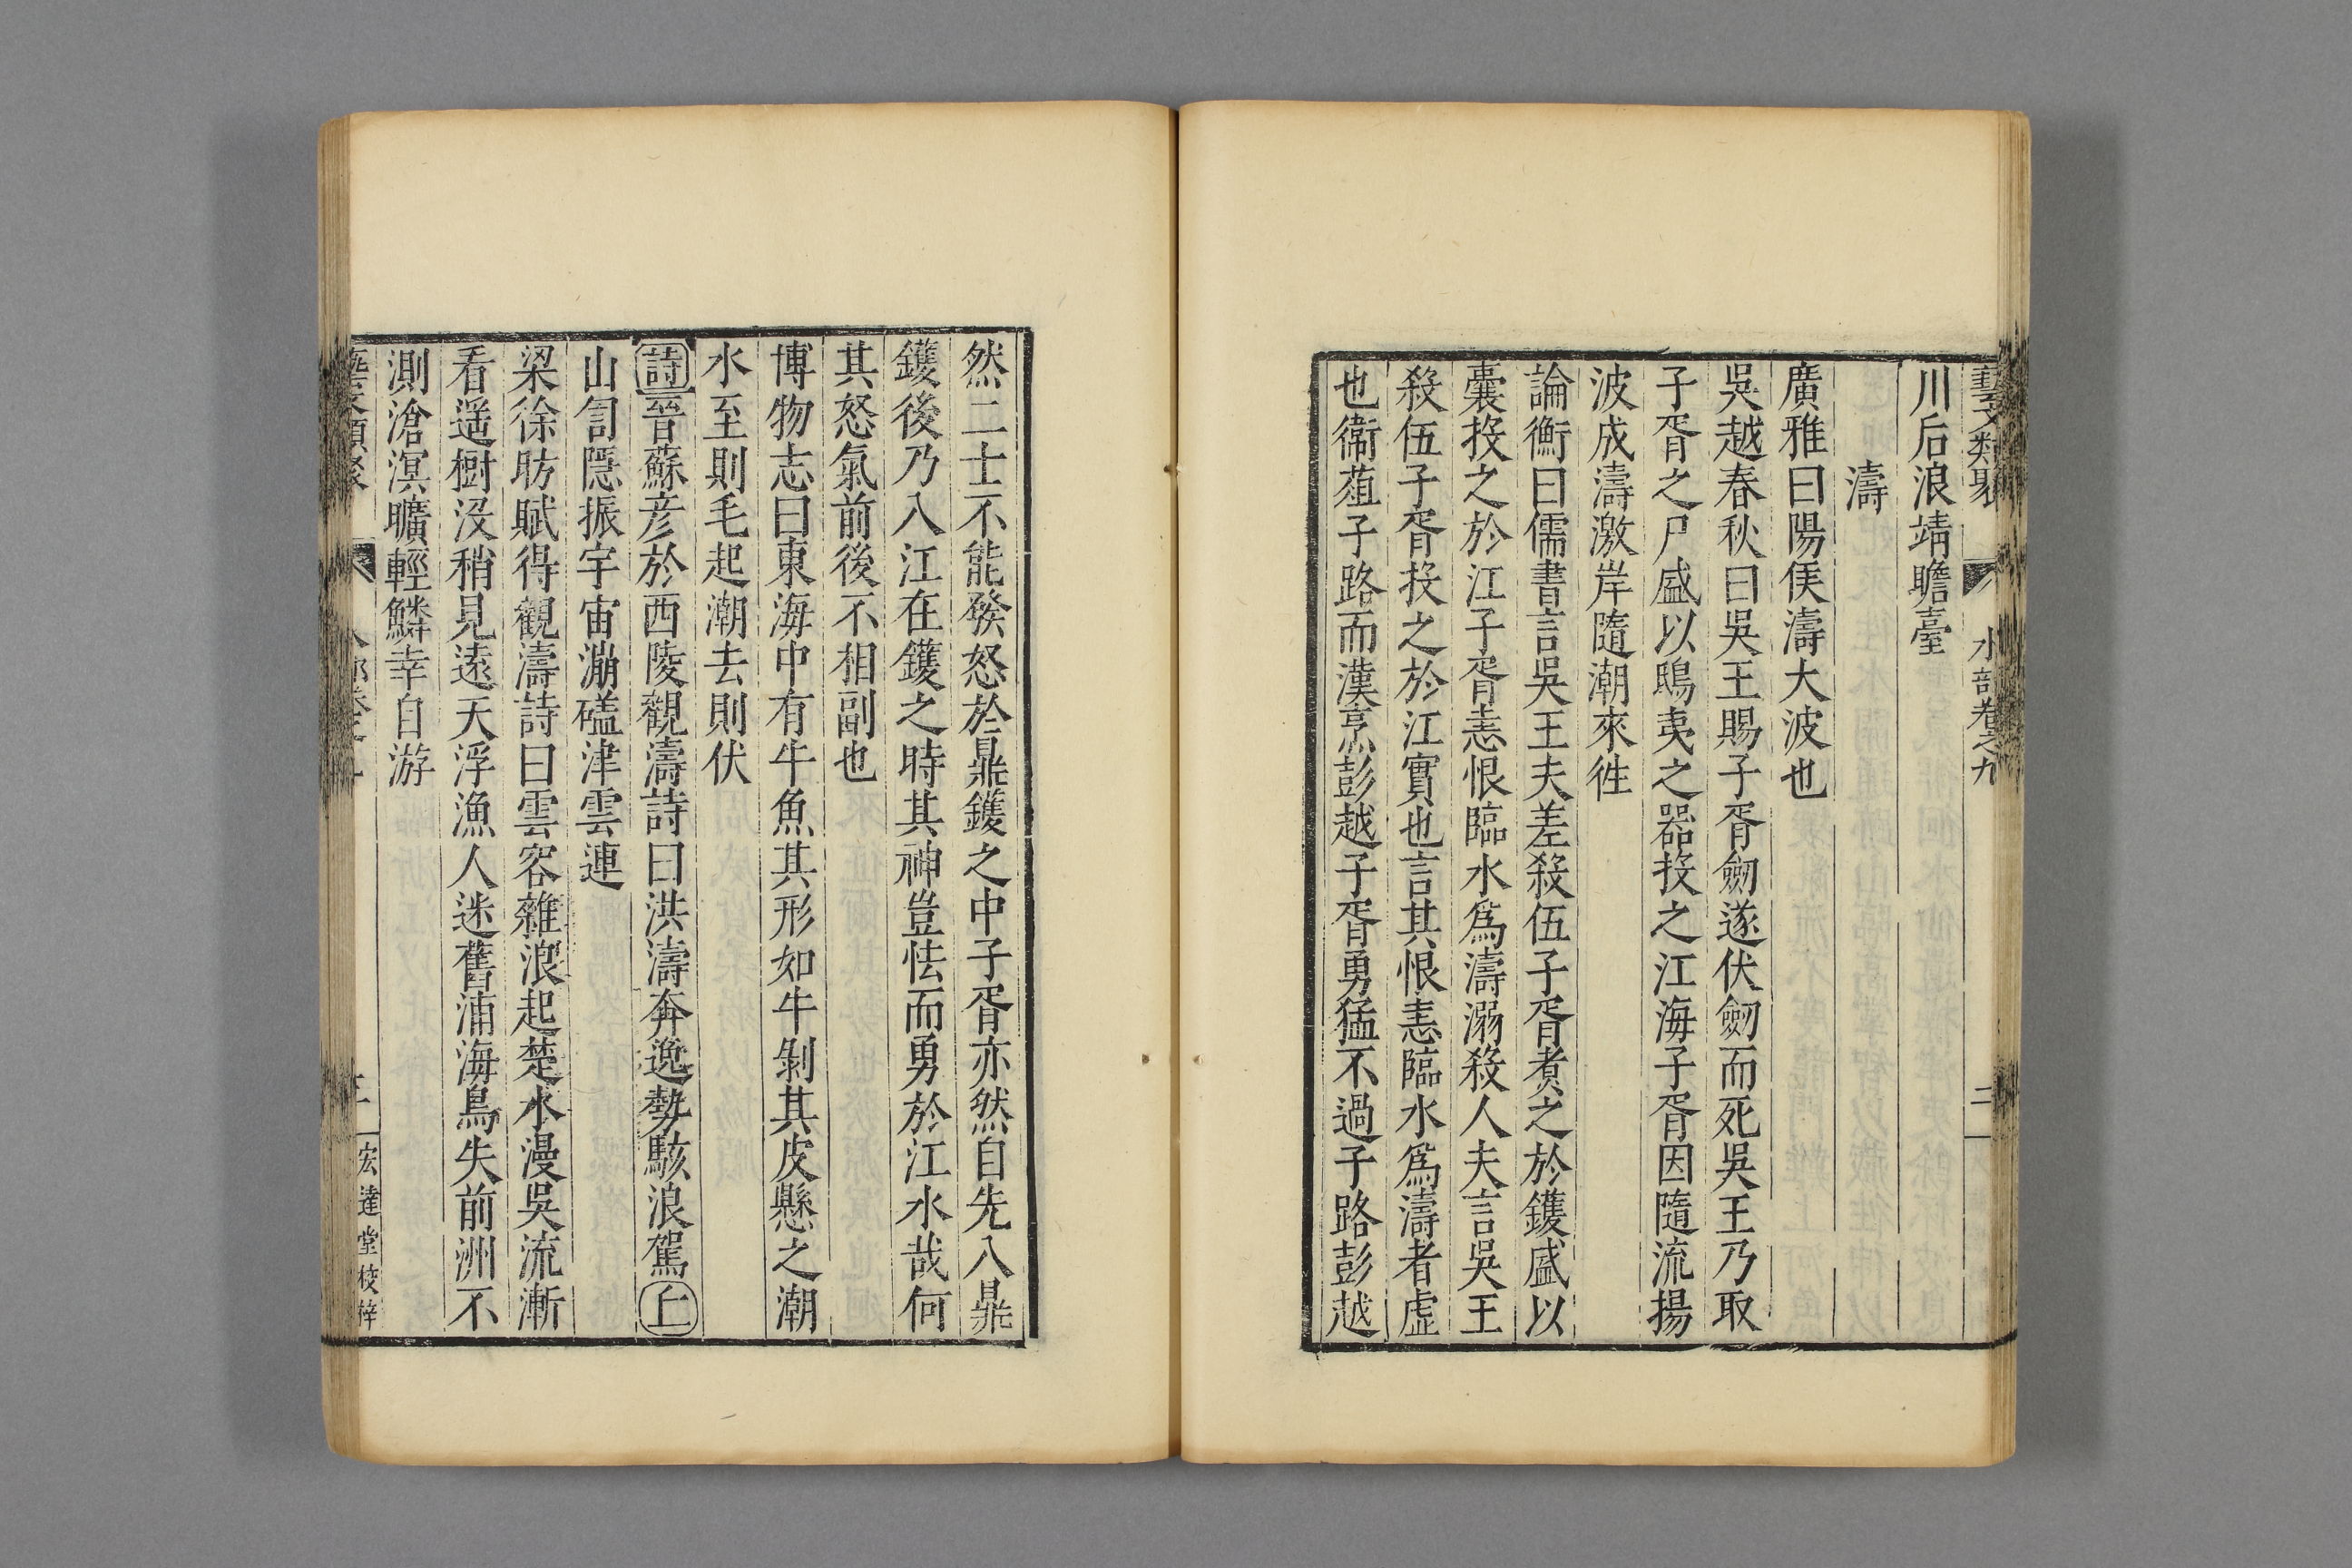 藝文類聚 水部卷之九 二
川后浪靖瞻臺
濤
廣雅曰陽侯濤大波也
吳越春秋曰吳王賜子胥劒遂伏劒而死吳王乃取
子胥之尸盛以鴟夷之器投之江海子胥因隨流揚
波成濤激岸隨潮來徃
論衡曰儒書言吳王夫差殺伍子胥煑之於鑊盛以
囊投之於江子胥恚恨臨水爲濤溺殺人夫言吳王
殺伍子胥投之於江實也言其恨恚臨水爲濤者虛
也衞葅子路而漢烹彭越子胥勇猛不過子路彭越
然二士不能發怒於鼎鑊之中子胥亦然自先入鼎
鑊後乃入江在鑊之時其神豈怯而勇於江水哉何
其怒氣前後不相副也
博物志曰東海中有牛魚其形如牛剝其皮懸之潮
水至則毛起潮去則伏
詩晉蘇彦於西陵觀濤詩曰洪濤奔逸勢駭浪駕上
山訇隱振宇宙漰礚津雲連
梁徐昉賦得觀濤詩曰雲容雜浪起楚水漫吳流漸
看遥樹没稍見逺天浮漁人迷舊浦海鳥失前洲不
測滄溟曠輕鱗幸自游
宏達堂校梓